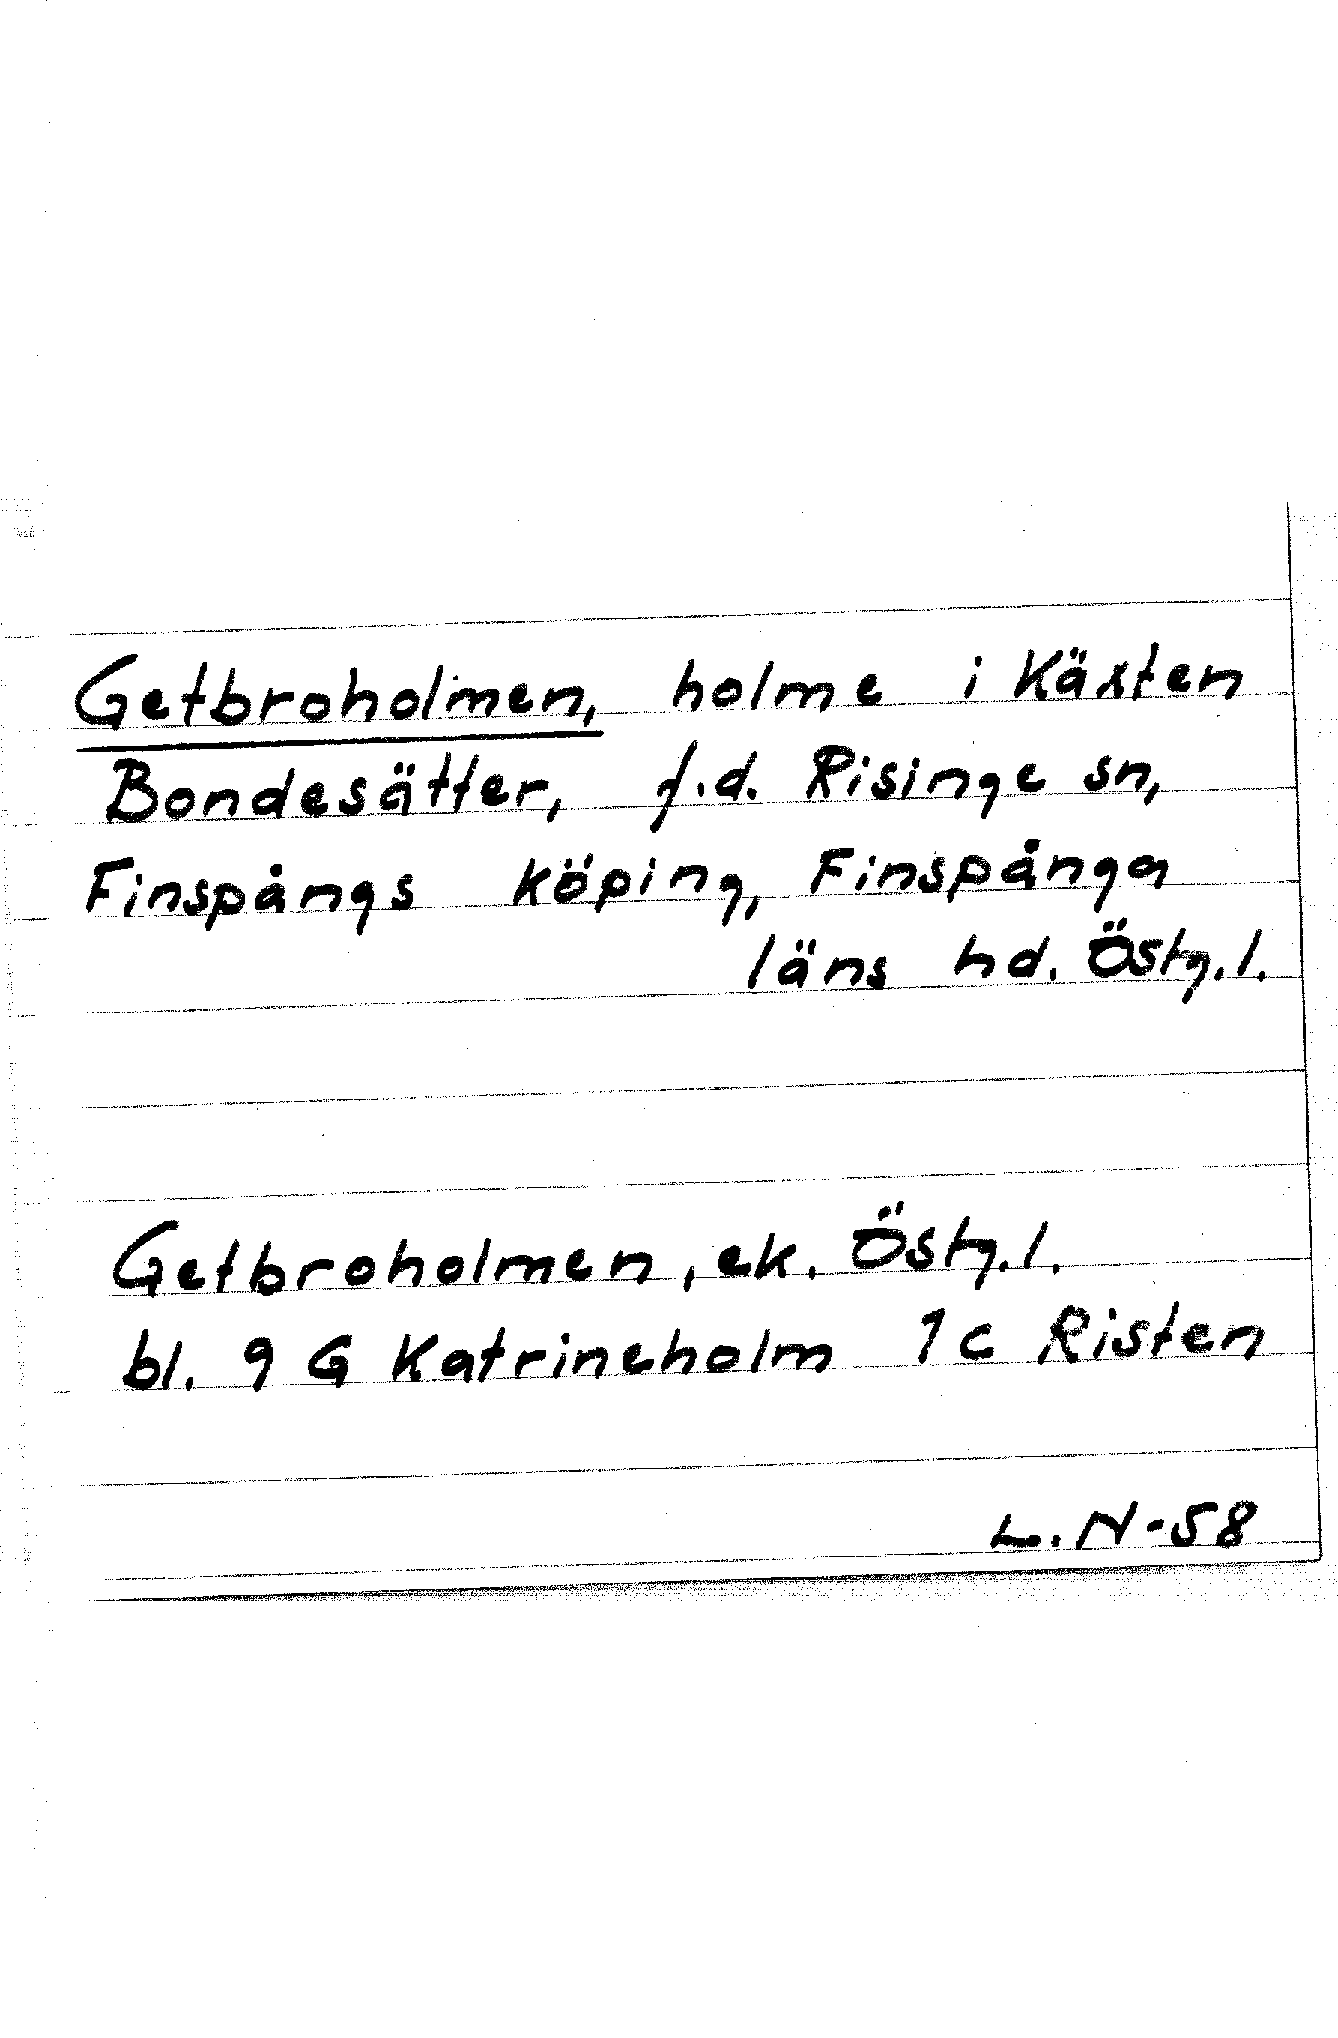 Getbroholmen, holme i Käxten
Bondesätter, f.d. Risinge sn,
Finspångs köping, Finspånga
läns hd. Östg.l.
Getbroholmen, ek. Östg.l.
bl. 9 G Katrineholm 1c Risten
L.N-58